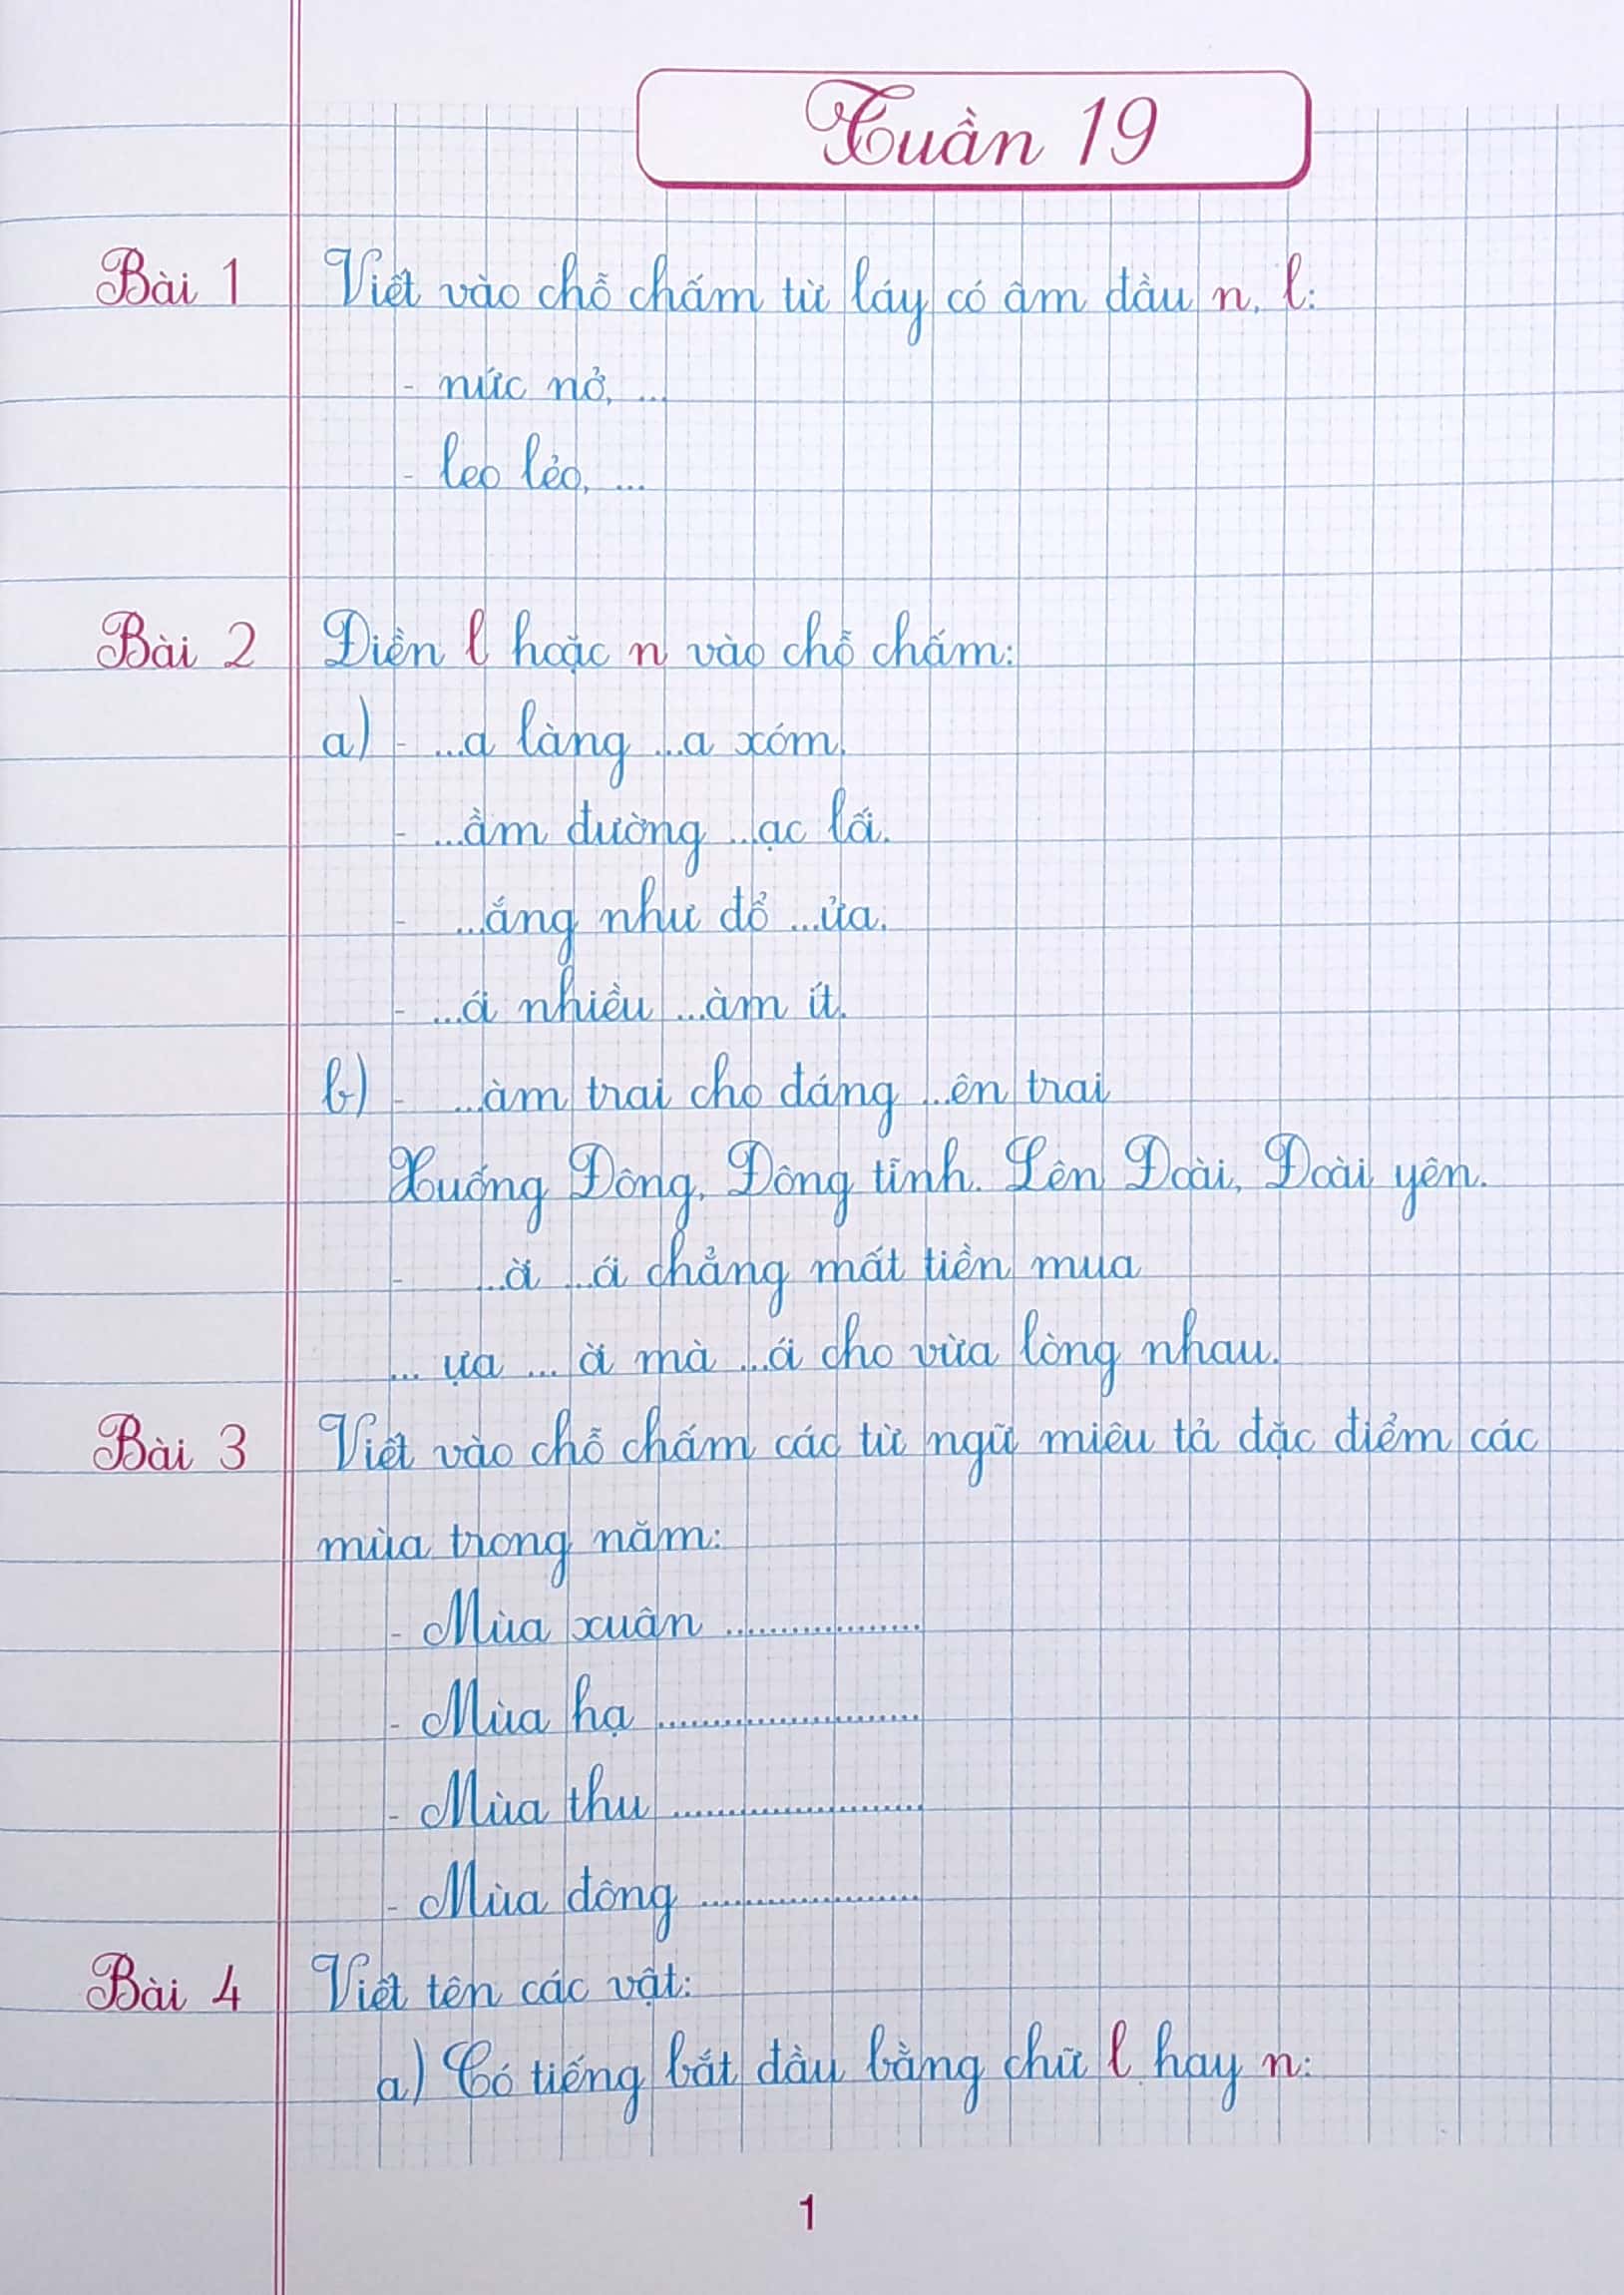 Tuần 19
Bài 1 Viết vào chỗ chấm từ láy có âm đầu n, l:
- nức nở, ...
- leo lẻo, ...
Bài 2 Điền l hoặc n vào chỗ chấm:
a) - ...a làng ...a xóm.
- ...ầm đường ...ạc lối.
- ...ắng như đổ ...ửa.
- ...ói nhiều ...àm ít.
b) - ...àm trai cho đáng ...ên trai
Xuống Đông, Đông tĩnh. Lên Đoài, Đoài yên.
- ...ời ...ói chẳng mất tiền mua
... ựa ... ời mà ...ói cho vừa lòng nhau.
Bài 3 Viết vào chỗ chấm các từ ngữ miêu tả đặc điểm các
mùa trong năm:
- Mùa xuân ..................
- Mùa hạ ........................
- Mùa thu .......................
- Mùa đông ....................
Bài 4 Viết tên các vật:
a) Có tiếng bắt đầu bằng chữ l hay n:
1